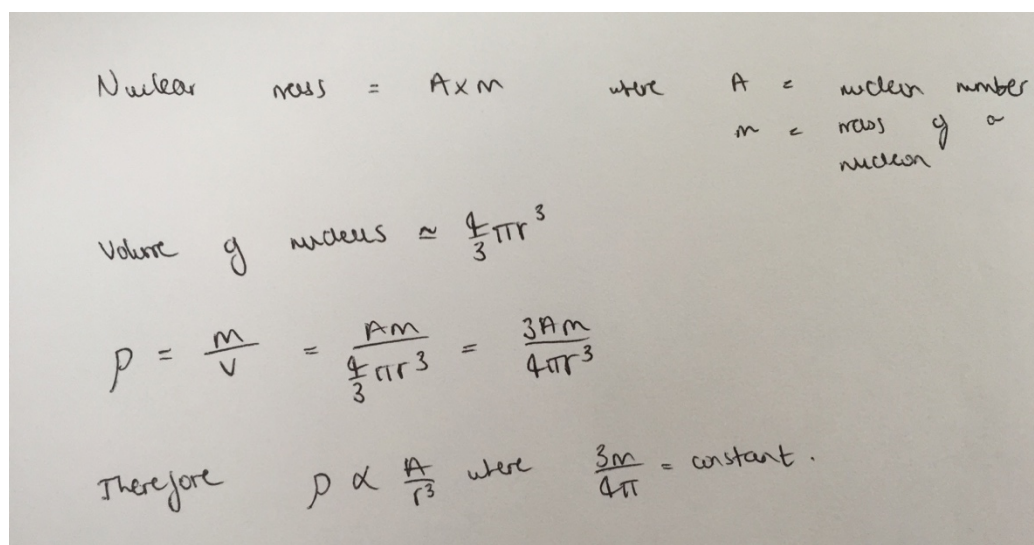 Nuclear mass = A x m where A = nucleon number
m = mass of a
nucleon
Volume of nucleus ≃ 4/3 πr³
ρ = m/V = Am / (4/3 πr³) = 3Am / 4πr³
Therefore ρ ∝ A/r³ where 3m/4π = constant.